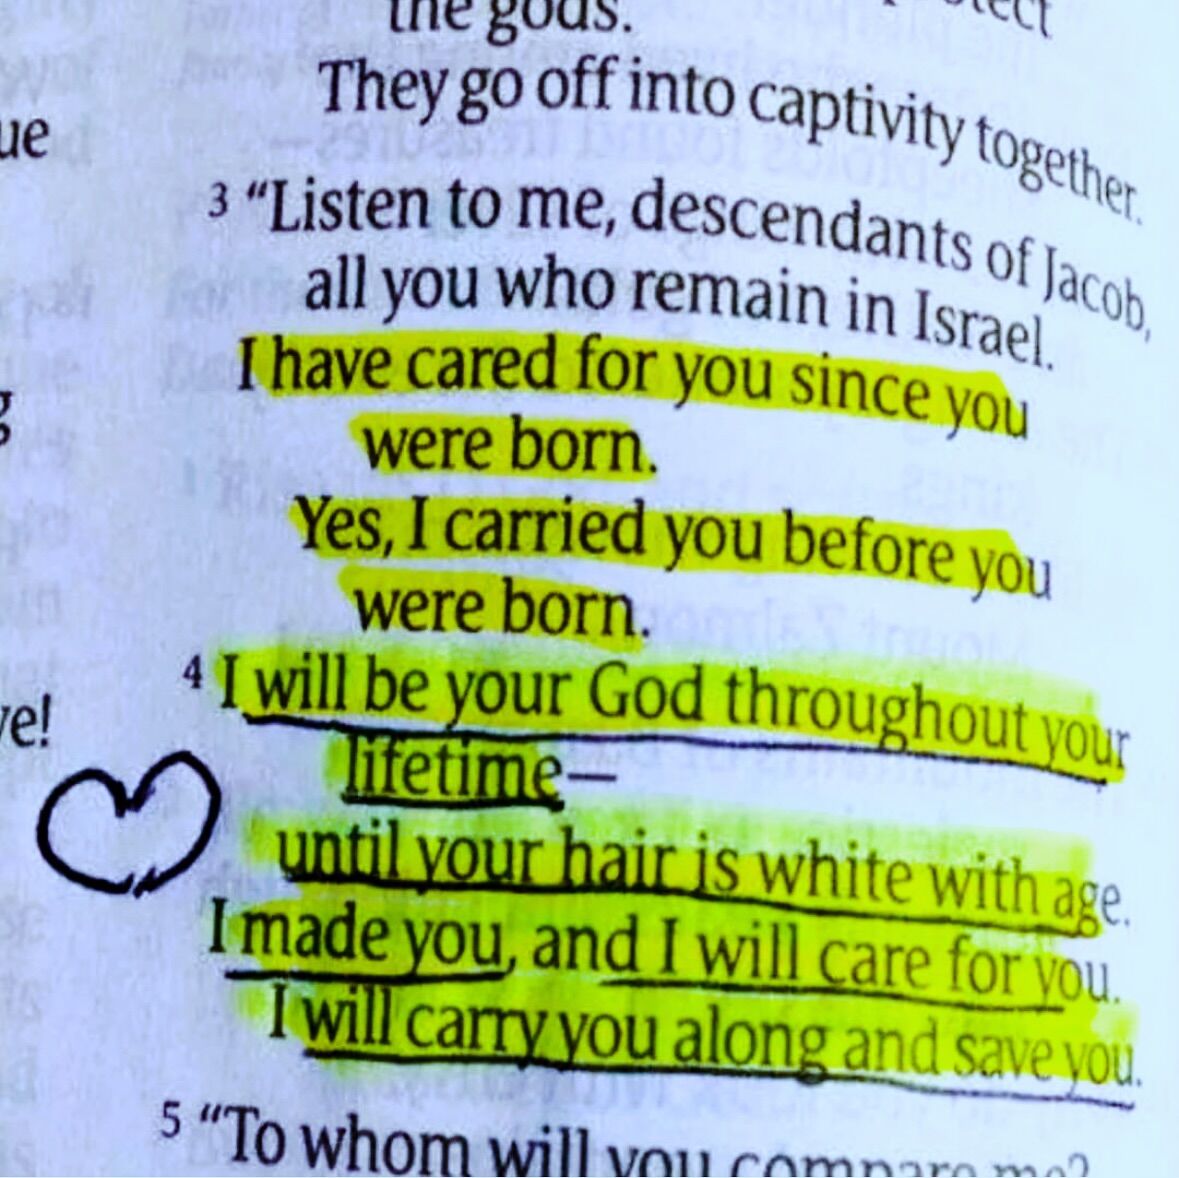 the gods.
They go off into captivity together.
3 “Listen to me, descendants of Jacob,
all you who remain in Israel.
I have cared for you since you
were born.
Yes, I carried you before you
were born.
4 I will be your God throughout your
lifetime—
until your hair is white with age.
I made you, and I will care for you.
I will carry you along and save you.
5 “To whom will you compare me?